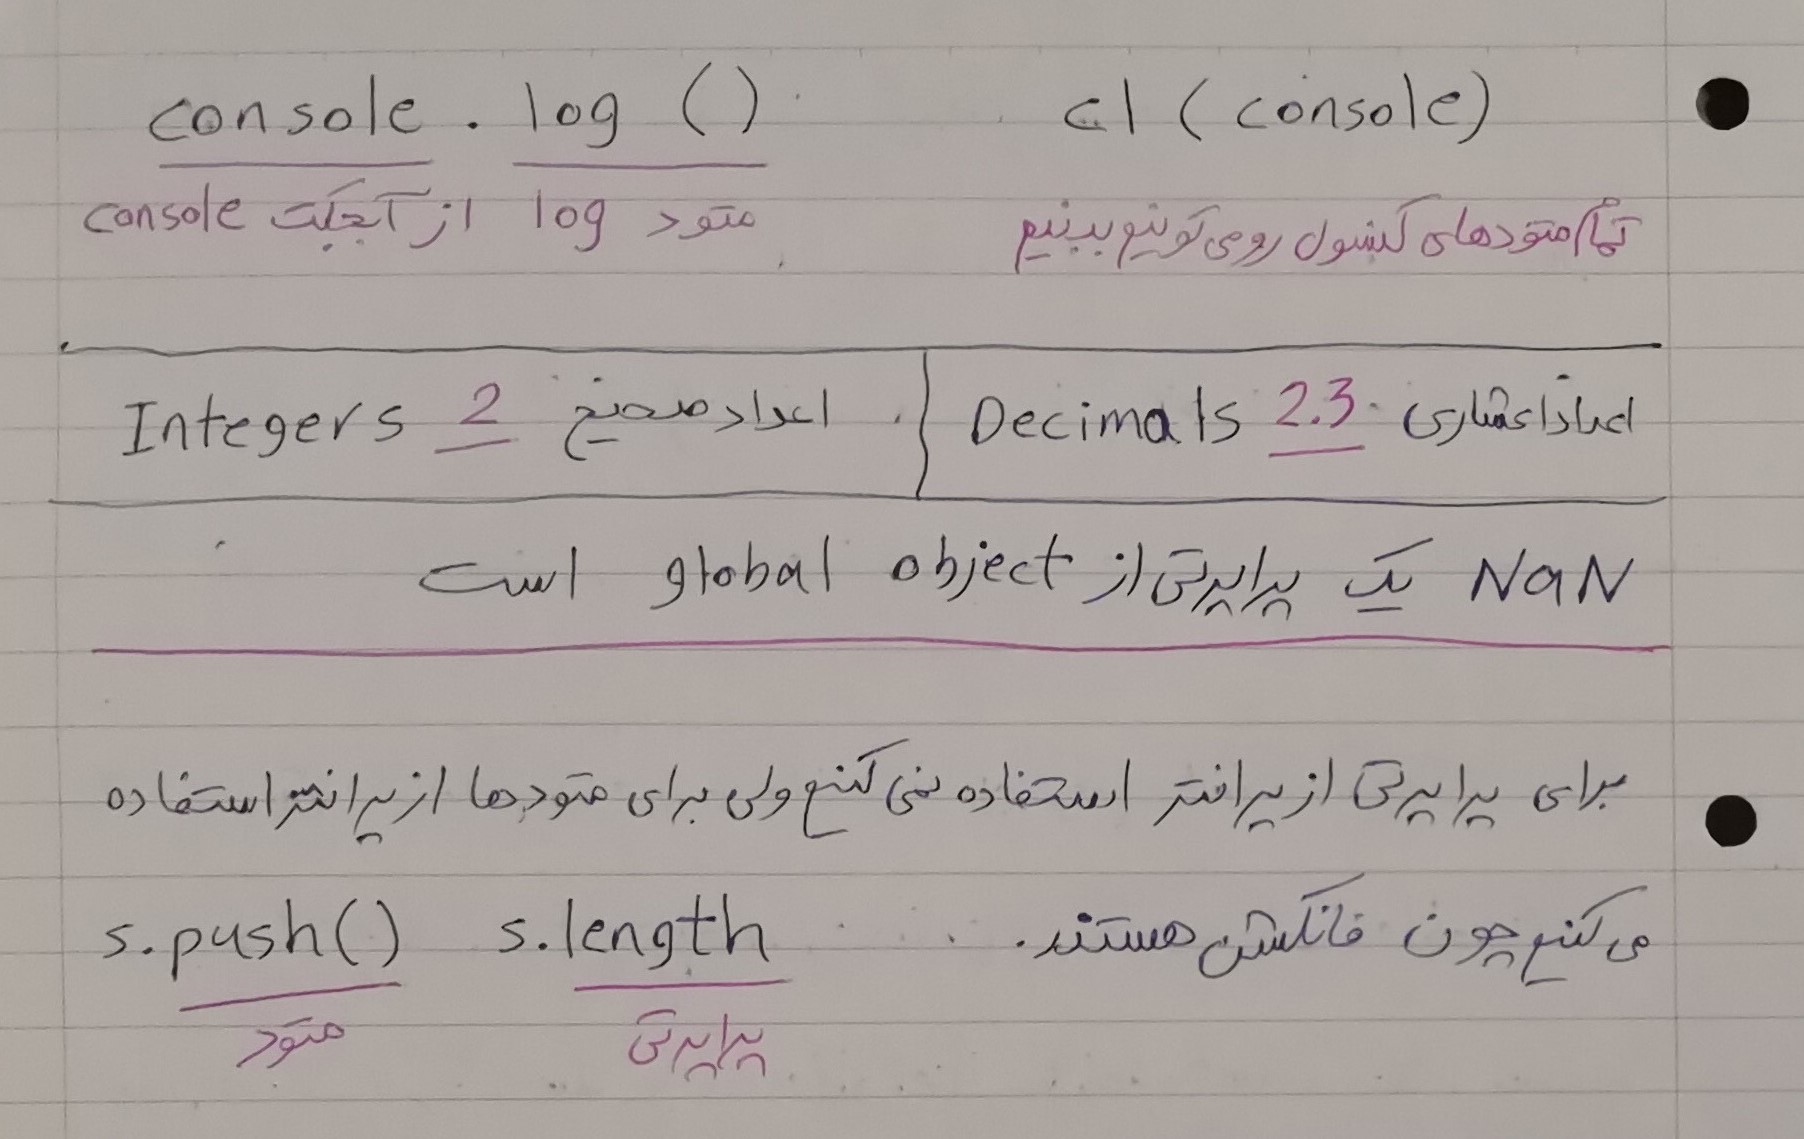 console.log()
cl (console)
متود log از آبجکت console
تمام متودهای کنسول رو می تونیم ببینیم
Integers 2 اعداد صحیح
Decimals 2.3 اعداد اعشاری
NaN یک پراپرتی از global object است
برای پراپرتی از پرانتز استفاده نمی کنیم ولی برای متودها از پرانتز استفاده
می کنیم چون فانکشن هستند.
s.push() s.length
متود پراپرتی